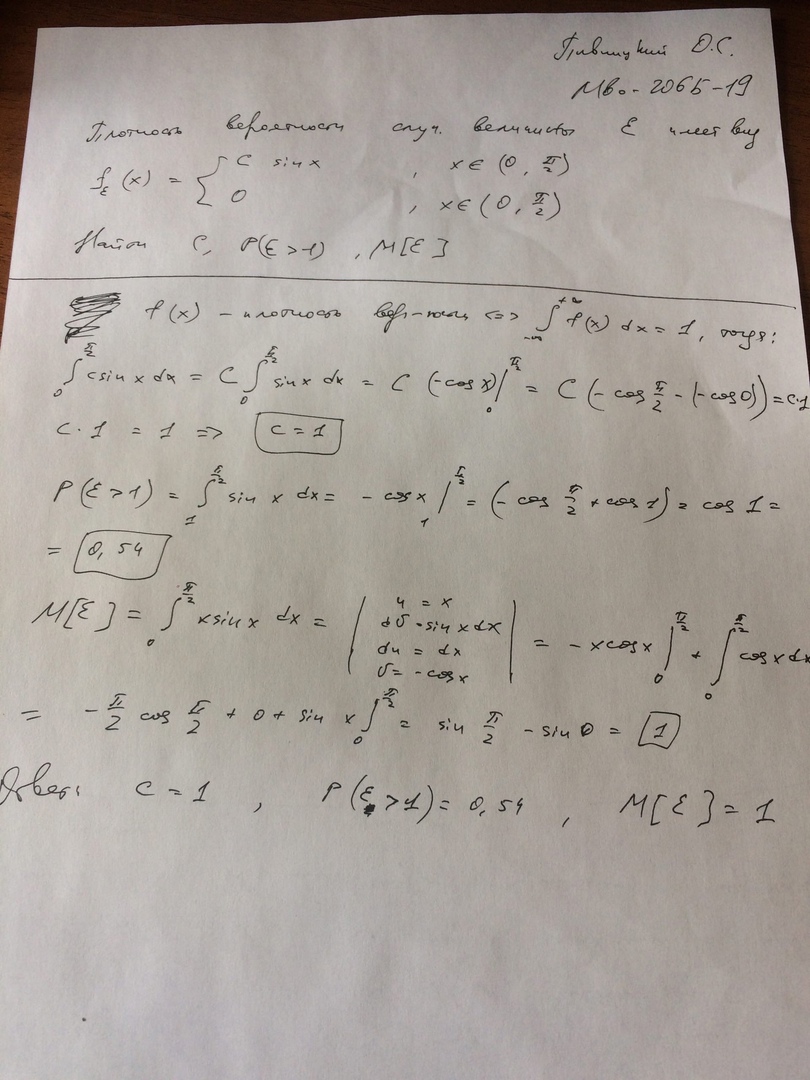 О.С.
МВо-206Б-19
Плотность вероятности случ. величины ξ имеет вид
f_ξ(x) = { C sin x , x ∈ (0, π/2)
0 , x ∈ (0, π/2)
Найти C, P(ξ > 1), M[ξ]
f(x) – плотность вер-ности <=> ∫_{-∞}^{+∞} f(x) dx = 1, тогда:
∫_0^{π/2} c sin x dx = C ∫_0^{π/2} sin x dx = C (-cos x)|_0^{π/2} = C (-cos π/2 - (-cos 0)) = C·1
C · 1 = 1 => C = 1
P(ξ > 1) = ∫_1^{π/2} sin x dx = - cos x |_1^{π/2} = (- cos π/2 + cos 1) = cos 1 =
= 0,54
M[ξ] = ∫_0^{π/2} x sin x dx = | u = x
dv = sin x dx
du = dx
v = -cos x | = -x cos x |_0^{π/2} + ∫_0^{π/2} cos x dx
= - π/2 cos π/2 + 0 + sin x ∫_0^{π/2} = sin π/2 - sin 0 = 1
Ответ: C = 1 , P(ξ > 1) = 0,54 , M[ξ] = 1